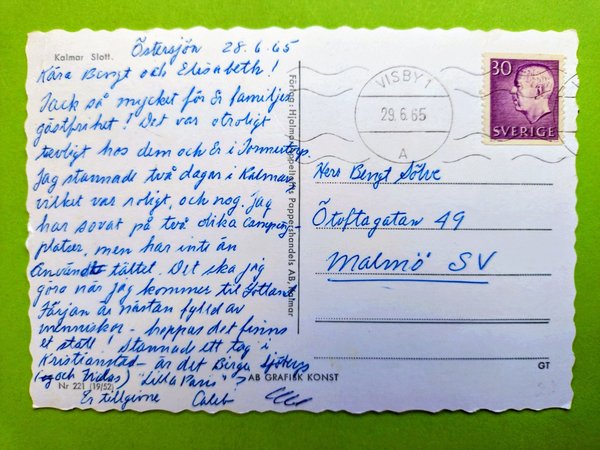 Kalmar Slott.
Östersjön 28.6.65
Kära Bengt och Elisabeth!
Tack så mycket för Er familjs
gästfrihet! Det var otroligt
trevligt hos dem och Er i
Jag stannade två dagar i Kalmar
vilket var roligt, och nog. Jag
har sovat på två olika camping-
platser, men har inte än
använt tältet. Det ska jag
göra när jag kommer till Gotland.
Färjan är nästan fylld av
människor - hoppas det finns
et stall! Stannade ett tag i
Kristianstad - är det Birger Sjöbergs
(och Fridas) "Lilla Paris"?
Er tillgivne Caleb
Nr 221 (19/52)
Förlag: Hjalmar Appeltoffts Pappershandels AB, Kalmar
AB GRAFISK KONST
VISBY 1
29.6.65
A
30
SVERIGE
Herr Bengt Sölve
Ötoftagatan 49
Malmö SV
GT